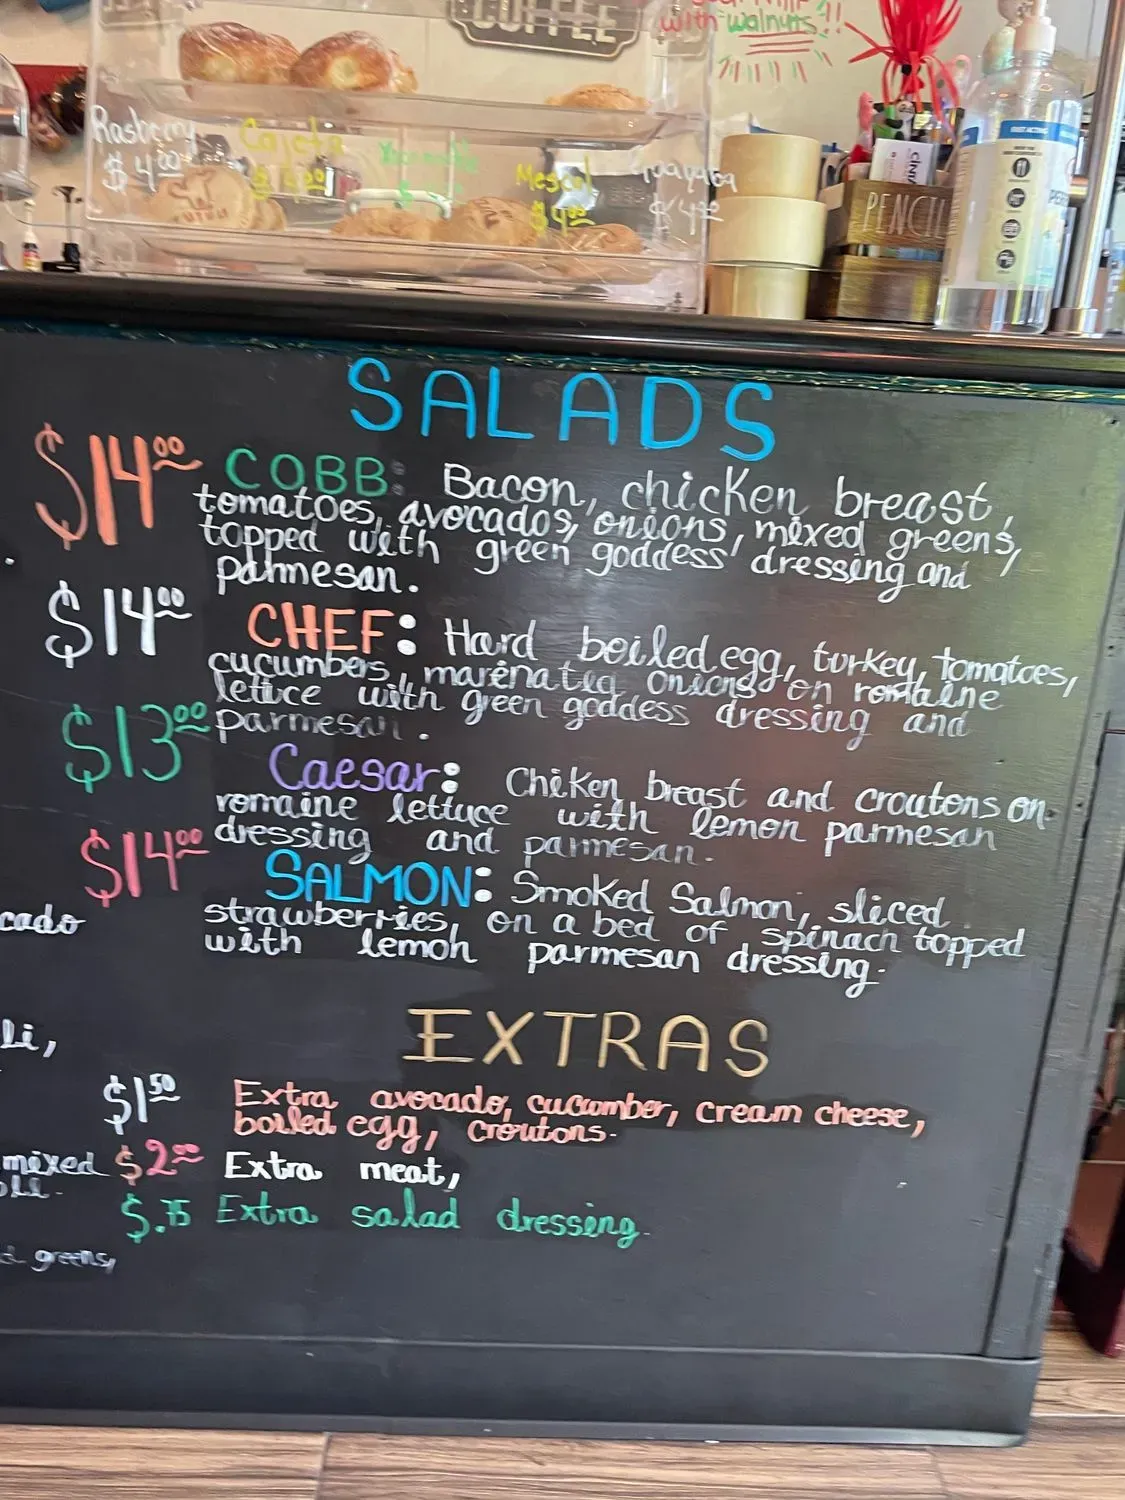 COFFEE
with walnuts!!
Rasberry
$4.00
Cajeta
Mescal
$4.00
Guayaba
$4.00
PENCIL
SALADS
$14.00 COBB: Bacon, chicken breast,
tomatoes, avocados, onions, mixed greens,
topped with green goddess dressing and
parmesan.
$14.00 CHEF: Hard boiled egg, turkey, tomatoes,
cucumbers, marenated onions on romaine
lettuce with green goddess dressing and
$13.00 parmesan.
Caesar: Chiken breast and croutons on
romaine lettuce with lemon parmesan
$14.00 dressing and parmesan.
SALMON: Smoked Salmon, sliced
cado
strawberries, on a bed of spinach topped
with lemon parmesan dressing.
EXTRAS
li,
$1.50 Extra avocado, cucumber, cream cheese,
boiled egg, croutons.
mixed $2.00 Extra meat,
$.75 Extra salad dressing.
greens,